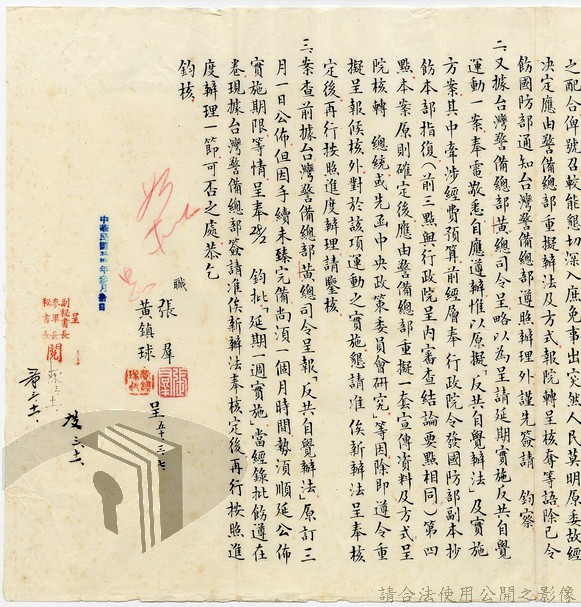 之配合俾號召較能懇切深入庶免事出突然人民莫明原委故經
決定應由警備總部重擬辦法及方式報院轉呈核奪等語除已令
飭國防部通知台灣警備總部遵照辦理外謹先簽請　鈞察
二、又據台灣警備總部黃總司令呈略以為呈請延期實施反共自覺
運動一案奉電敬悉自應遵辦惟以原擬「反共自覺辦法」及實施
方案其中牽涉經費預算前經層奉　行政院令發國防部副本抄
飭本部指復（前三點與行政院呈內審查結論要點相同）第四
點本案原則確定後應由警備總部重擬一套宣傳資料及方式呈
院核轉　總統或先函中央政策委員會研究」等因除即遵令重
擬呈報候核外對於該項運動之實施懇請准俟新辦法呈奉核
定後再行按照進度辦理請鑒核
三、案查前據台灣警備總部黃總司令呈報「反共自覺辦法」原訂三
月一日公佈但因手續未臻完備尚須一個月時間勢須順延公佈
實施期限等情呈奉　鈞批「延期一週實施」當經錄批飭遵在
卷現據台灣警備總部簽請准俟新辦法奉核定後再行按照進
度辦理一節可否之處恭乞
鈞核
職　張羣
黃鎮球
呈　五十、三、七
呈
副秘書長
參軍長
秘書長
閱
三、十一、
請合法使用公開之影像